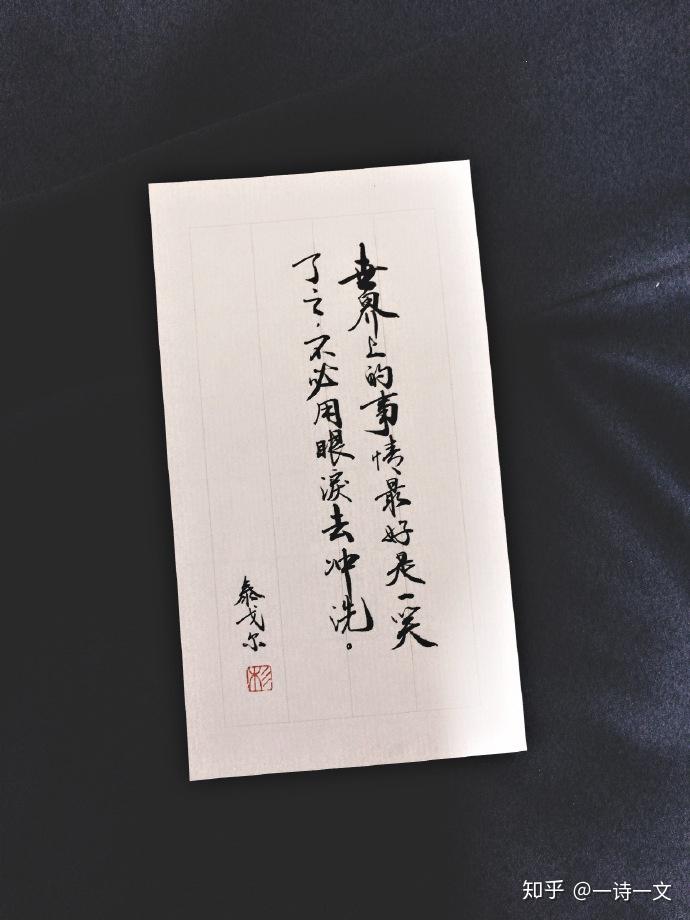 世界上的事情最好是一笑
了之，不必用眼淚去冲洗。
泰戈尔
杉
知乎 @一诗一文